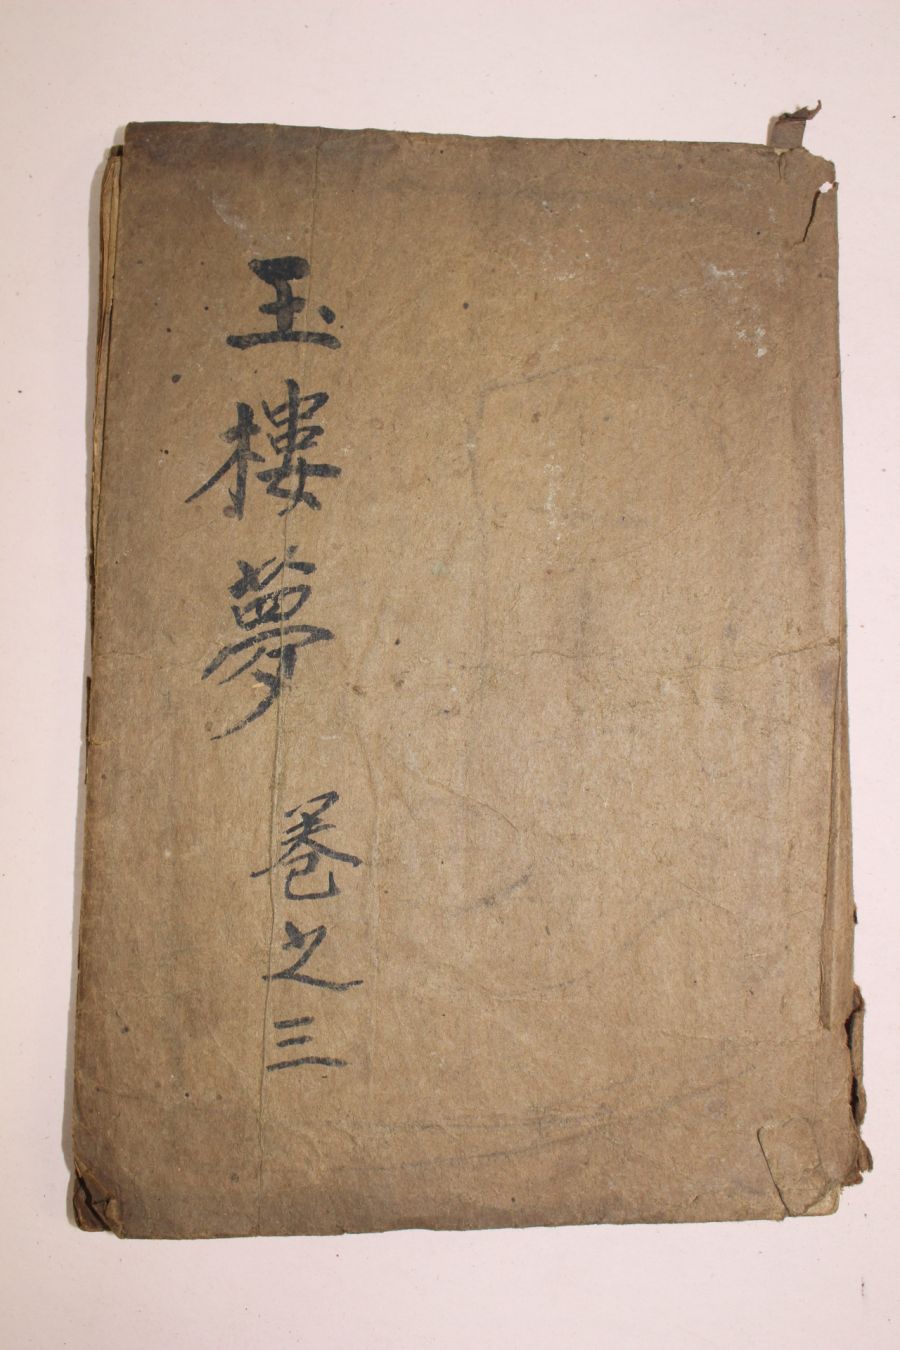 玉樓夢 卷之三